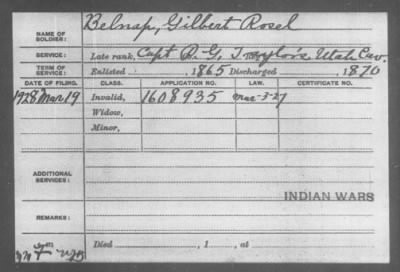 NAME OF SOLDIER: Belnap, Gilbert Rosel
SERVICE: Late rank, Capt R. G. Taylor's Utah Cav.
TERM OF SERVICE: Enlisted , 1865 Discharged , 1870
DATE OF FILING. CLASS. APPLICATION NO. LAW. CERTIFICATE NO.
1928 Mar 19 Invalid, 1608935 Mar-3-27
Widow,
Minor,
ADDITIONAL SERVICES:
INDIAN WARS
REMARKS:
Died , 1 , at